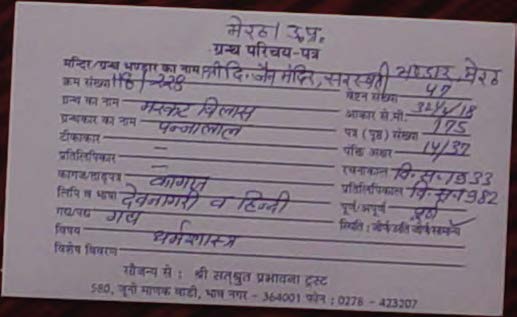 मेरठ उ.प्र.
ग्रन्थ परिचय-पत्र
मन्दिर/ग्रन्थ भण्डार का नाम श्री दि. जैन मंदिर, सरस्वती भण्डार, मेरठ
क्रम संख्या 228 वेष्टन संख्या 47
ग्रन्थ का नाम मरकट विलास आकार से.मी.
ग्रन्थकार का नाम पन्नालाल पत्र (पृष्ठ) संख्या 175
टीकाकार – पंक्ति अक्षर 14/37
प्रतिलिपिकार – रचनाकाल वि.स. 1933
कागज/ताड़पत्र कागज प्रतिलिपिकाल वि.स. 1982
लिपि व भाषा देवनागरी व हिन्दी पूर्ण/अपूर्ण पूर्ण
गद्य/पद्य गद्य स्थिति : जीर्ण/अति जीर्ण/सामान्य
विषय धर्मशास्त्र
विशेष विवरण
सौजन्य से : श्री सत्श्रुत प्रभावना ट्रस्ट
580, जूनी माणक वाडी, भाव नगर - 364001 फोन : 0278 - 423207